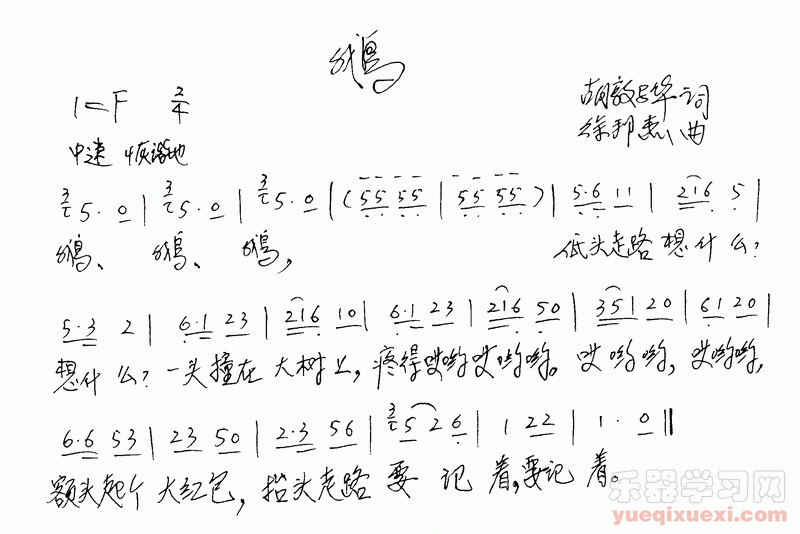 鹅
1=F 2/4
胡敦骅词
徐邦杰曲
中速 恢谐地
3 5· 0 | 3 5· 0 | 3 5· 0 | (55 55 | 55 55) | 5·6 11 | 216 5 |
鹅、 鹅、 鹅, 低头走路想什么?
5·3 2 | 6·1 23 | 216 10 | 6·1 23 | 216 50 | 351 20 | 61 20 |
想什么?一头撞在大树上,疼得哎哟哎哟哟。哎哟哟,哎哟哟,
6·6 53 | 23 50 | 2·3 56 | 3 5 2 6 | 1 22 | 1· 0 ‖
额头起个大红包,抬头走路要记着,要记着。
乐器学习网
yueqixuexi.com